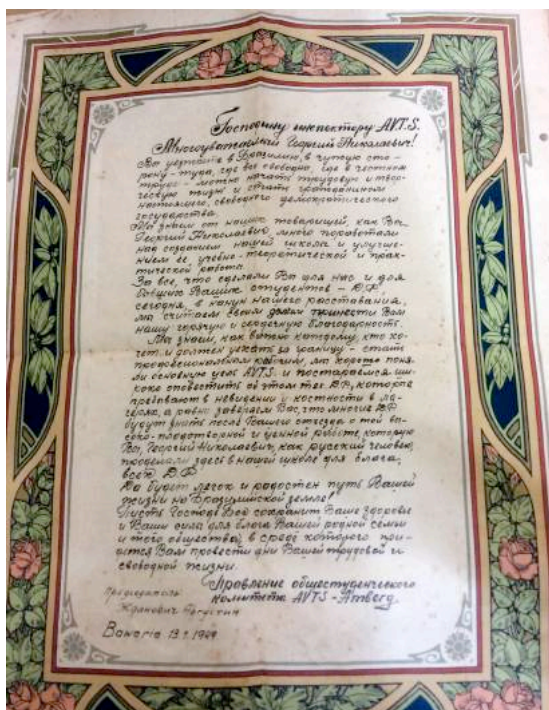 Господину инспектору AVTS.
Многоуважаемый Георгий Николаевич!
Вы уезжаете в Бразилию, в чужую сто-
рону – туда, где все свободно, где в честном
труде – можно начать трудовую и твор-
ческую жизнь и стать гражданином
настоящего, свободного демократического
государства.
Мы знаем от наших товарищей, как Вы,
Георгий Николаевич, много поработали
над созданием нашей школы и улучше-
нием ее учебно-теоретической и прак-
тической работы.
За все, что сделали Вы для нас и для
бывших Ваших студентов – Д.Р.
сегодня, в канун нашего расставания,
мы считаем своим долгом принести Вам
нашу горячую и сердечную благодарность.
Мы знаем, как важно каждому, кто хо-
чет и должен уехать за границу – стать
профессиональным рабочим, мы хорошо поня-
ли основную цель AVTS и постараемся ши-
роко оповестить об этом тех Д.Р., которые
пребывают в неведении и костности в ла-
герях, а равно заверяем Вас, что многие Д.Р.
будут знать после Вашего отъезда о той вы-
соко-плодотворной и ценной работе, которую
Вы, Георгий Николаевич, как русский человек,
проделали здесь в нашей школе для блага,
всех Д.Р.
Да будет легок и радостен путь Вашей
жизни на Бразилийской земле!
Пусть Господь Бог сохранит Ваше здоровье
и Ваши силы для блага Вашей родной семьи
и того общества, в среде которого при-
дется Вам провести дни Вашей трудовой и
свободной жизни.
Правление общестуденческого
комитета AVTS – Amberg
Председатель:
Bavaria 13.1.1949